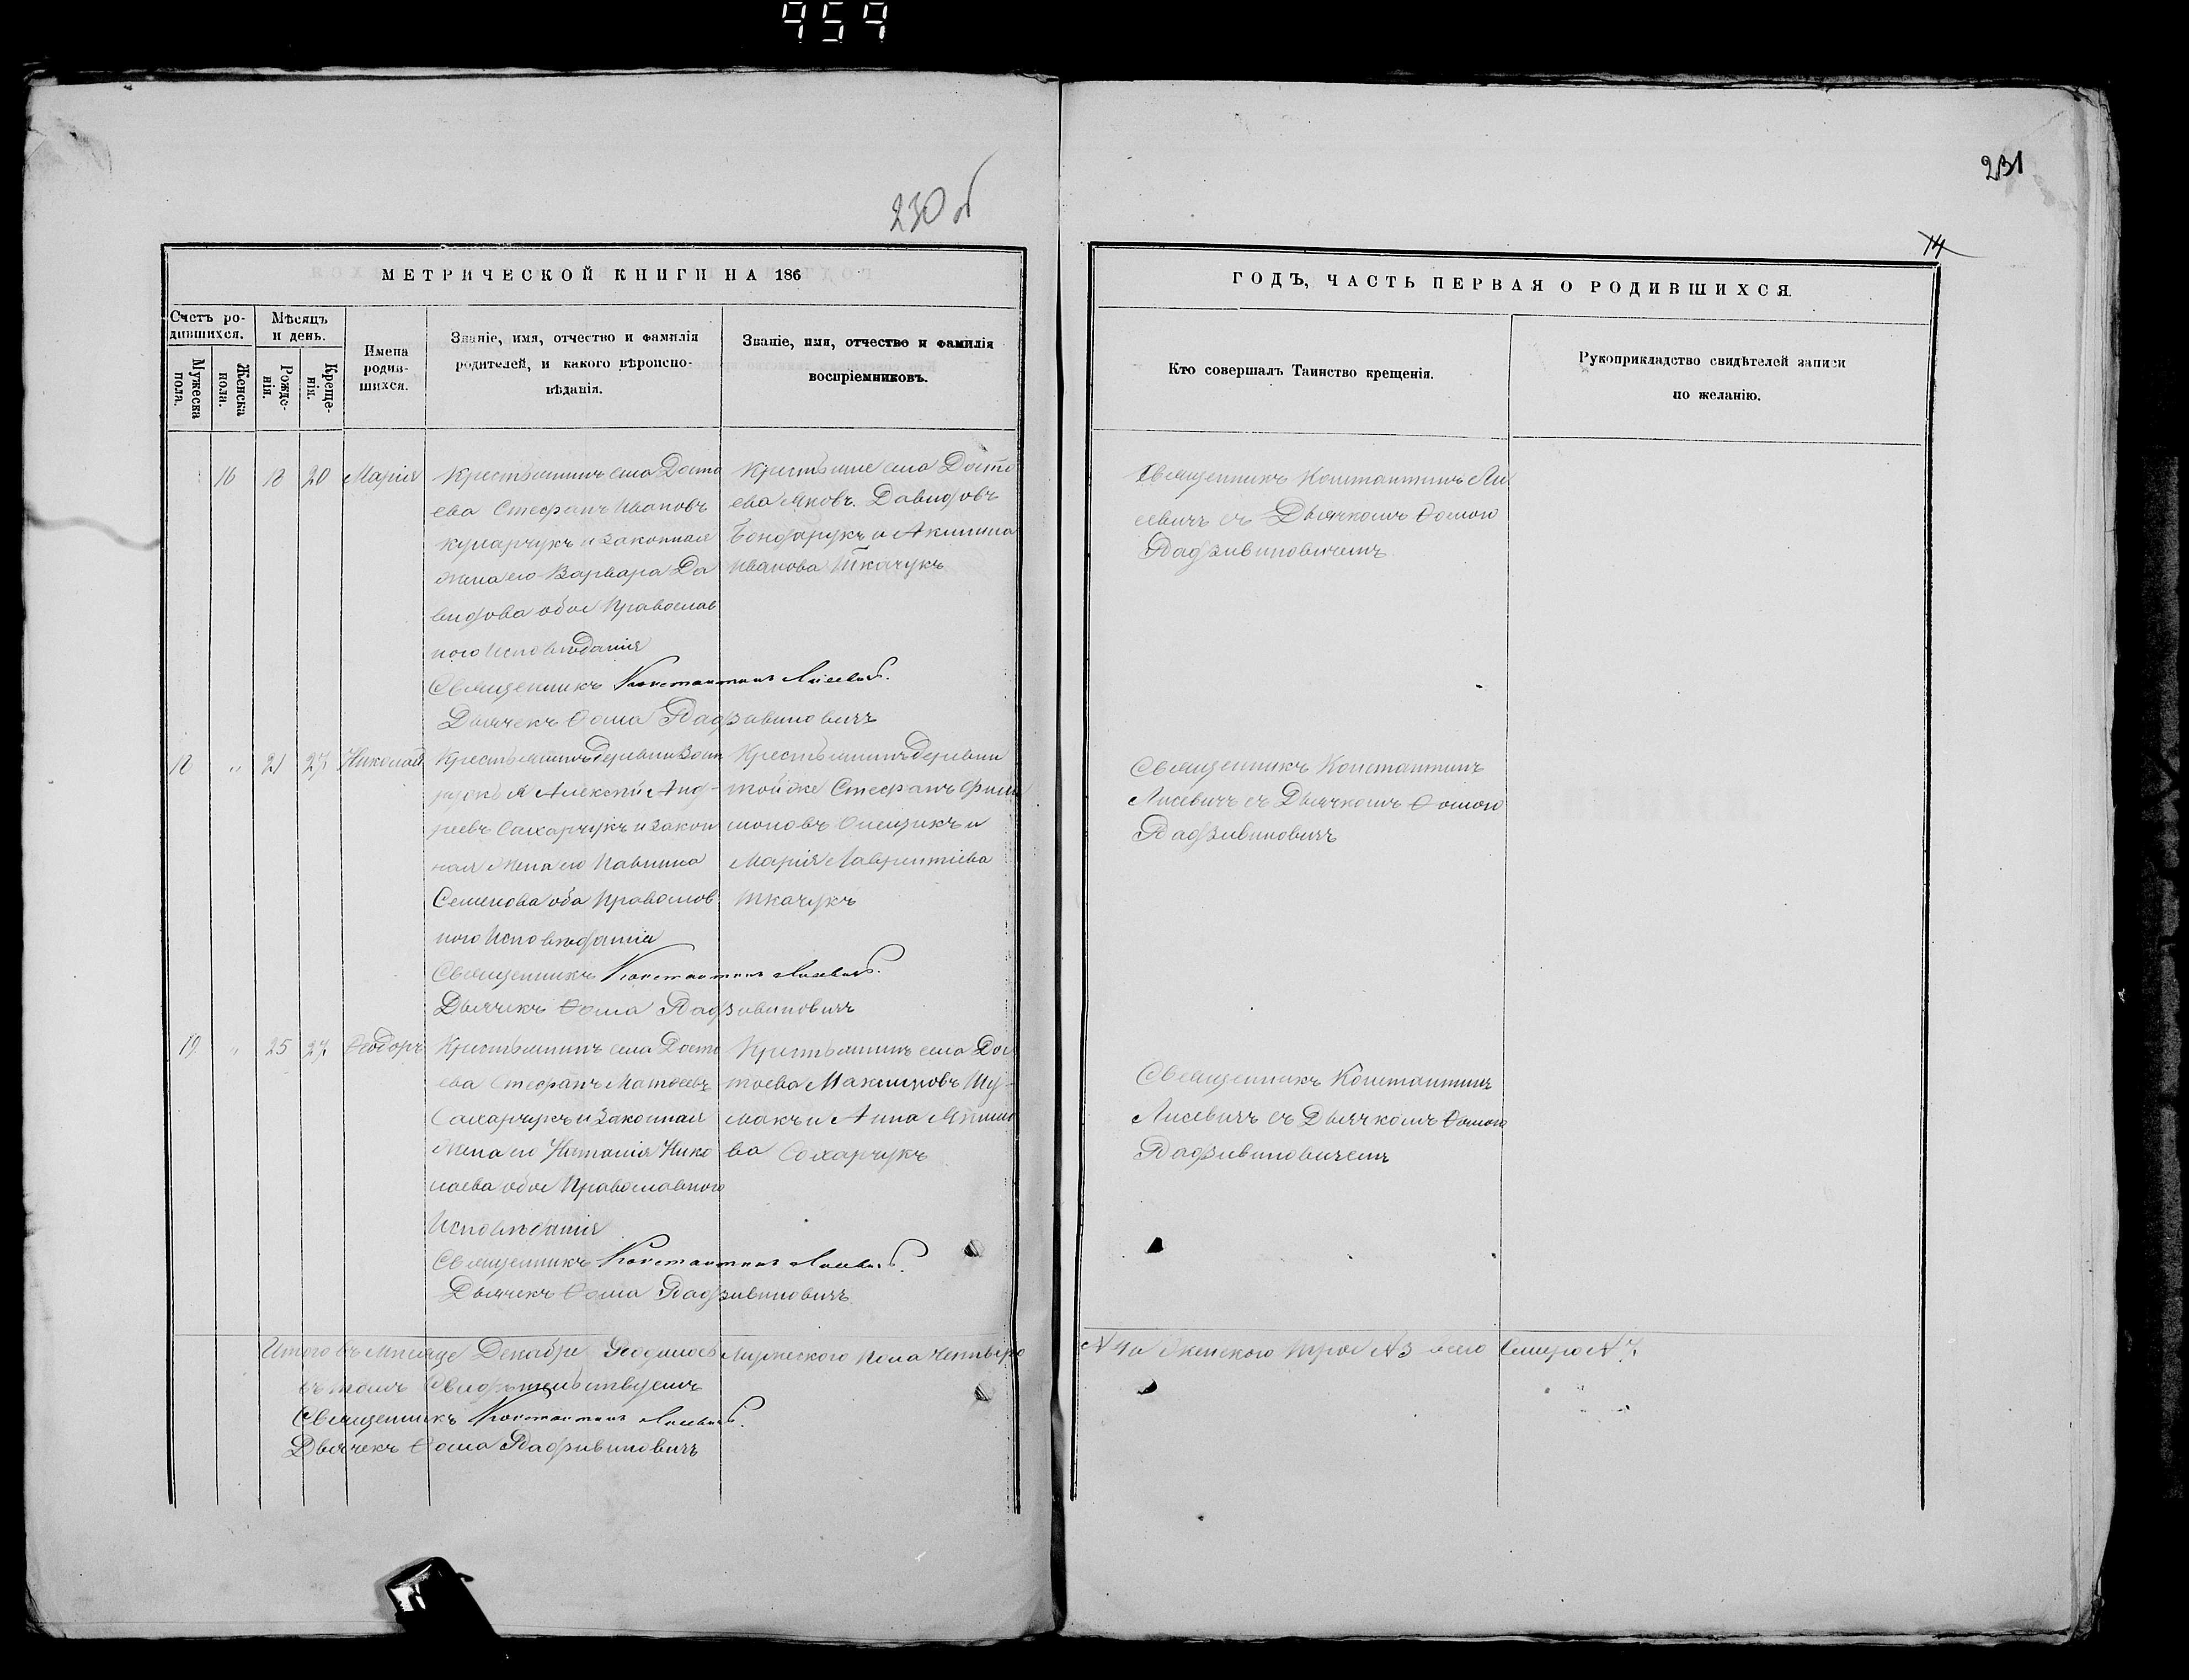 959
230 об
231
14
МЕТРИЧЕСКОЙ КНИГИ НА 186
ГОДЪ, ЧАСТЬ ПЕРВАЯ О РОДИВШИХСЯ.
Счетъ ро-
дившихся.
Мужеска
пола.
Женска
пола.
Мѣсяцъ
и день.
Рожде-
нія.
Креще-
нія.
Имена
родив-
шихся.
Званіе, имя, отчество и фамилія
родителей, и какого вѣроиспо-
вѣданія.
Званіе, имя, отчество и фамилія
воспріемниковъ.
Кто совершалъ Таинство крещенія.
Рукоприкладство свидѣтелей записи
по желанію.
16 18 20 Марія
Крестьянинъ села Досто
ева Стефанъ Ивановъ
Кухарчукъ и законная
жена его Варвара Да
видова обое Православ
ного Исповѣданія
Священникъ Константинъ Лисевичъ.
Дьячекъ Ѳома Радзивиновичъ
Крестьяне села Досто
ева Яковъ Давидовъ
Бондарукъ и Акилина
Иванова Ткачукъ
Священникъ Константинъ Ли
севичъ съ Дьячкомъ Ѳомою
Радзивиновичемъ
18 „ 21 27 Николай
Крестьянинъ деревни
Алексѣй Анд-
реевъ Сахарчукъ и закон
ная жена его Павлина
Семенова оба Православ
ного Исповѣданія
Священникъ Константинъ Лисевичъ.
Дьячекъ Ѳома Радзивиновичъ
Крестьянинъ деревни
той же Стефанъ Фили
моновъ и
Марія Лаврентіева
Ткачукъ
Священникъ Константинъ
Лисевичъ съ Дьячкомъ Ѳомою
Радзивиновичъ
19 „ 25 27 Ѳеодоръ
Крестьянинъ села Досто
ева Стефанъ Матѳеевъ
Сахарчукъ и законная
жена его Наталія Нико
лаева обое Православного
Исповѣданія
Священникъ Константинъ Лисевичъ.
Дьячекъ Ѳома Радзивиновичъ
Крестьянинъ села Дос
тоева Шу-
макъ и Анна
ва Сахарчукъ
Священникъ Константинъ
Лисевичъ съ Дьячкомъ Ѳомою
Радзивиновичемъ
Итого въ мѣсяце Декабре Родилось Мужеского пола четверо
№ 4 и Женского трое № 3 всего семеро № 7.
въ томъ Свидѣтельствуемъ
Священникъ Константинъ Лисевичъ.
Дьячекъ Ѳома Радзивиновичъ